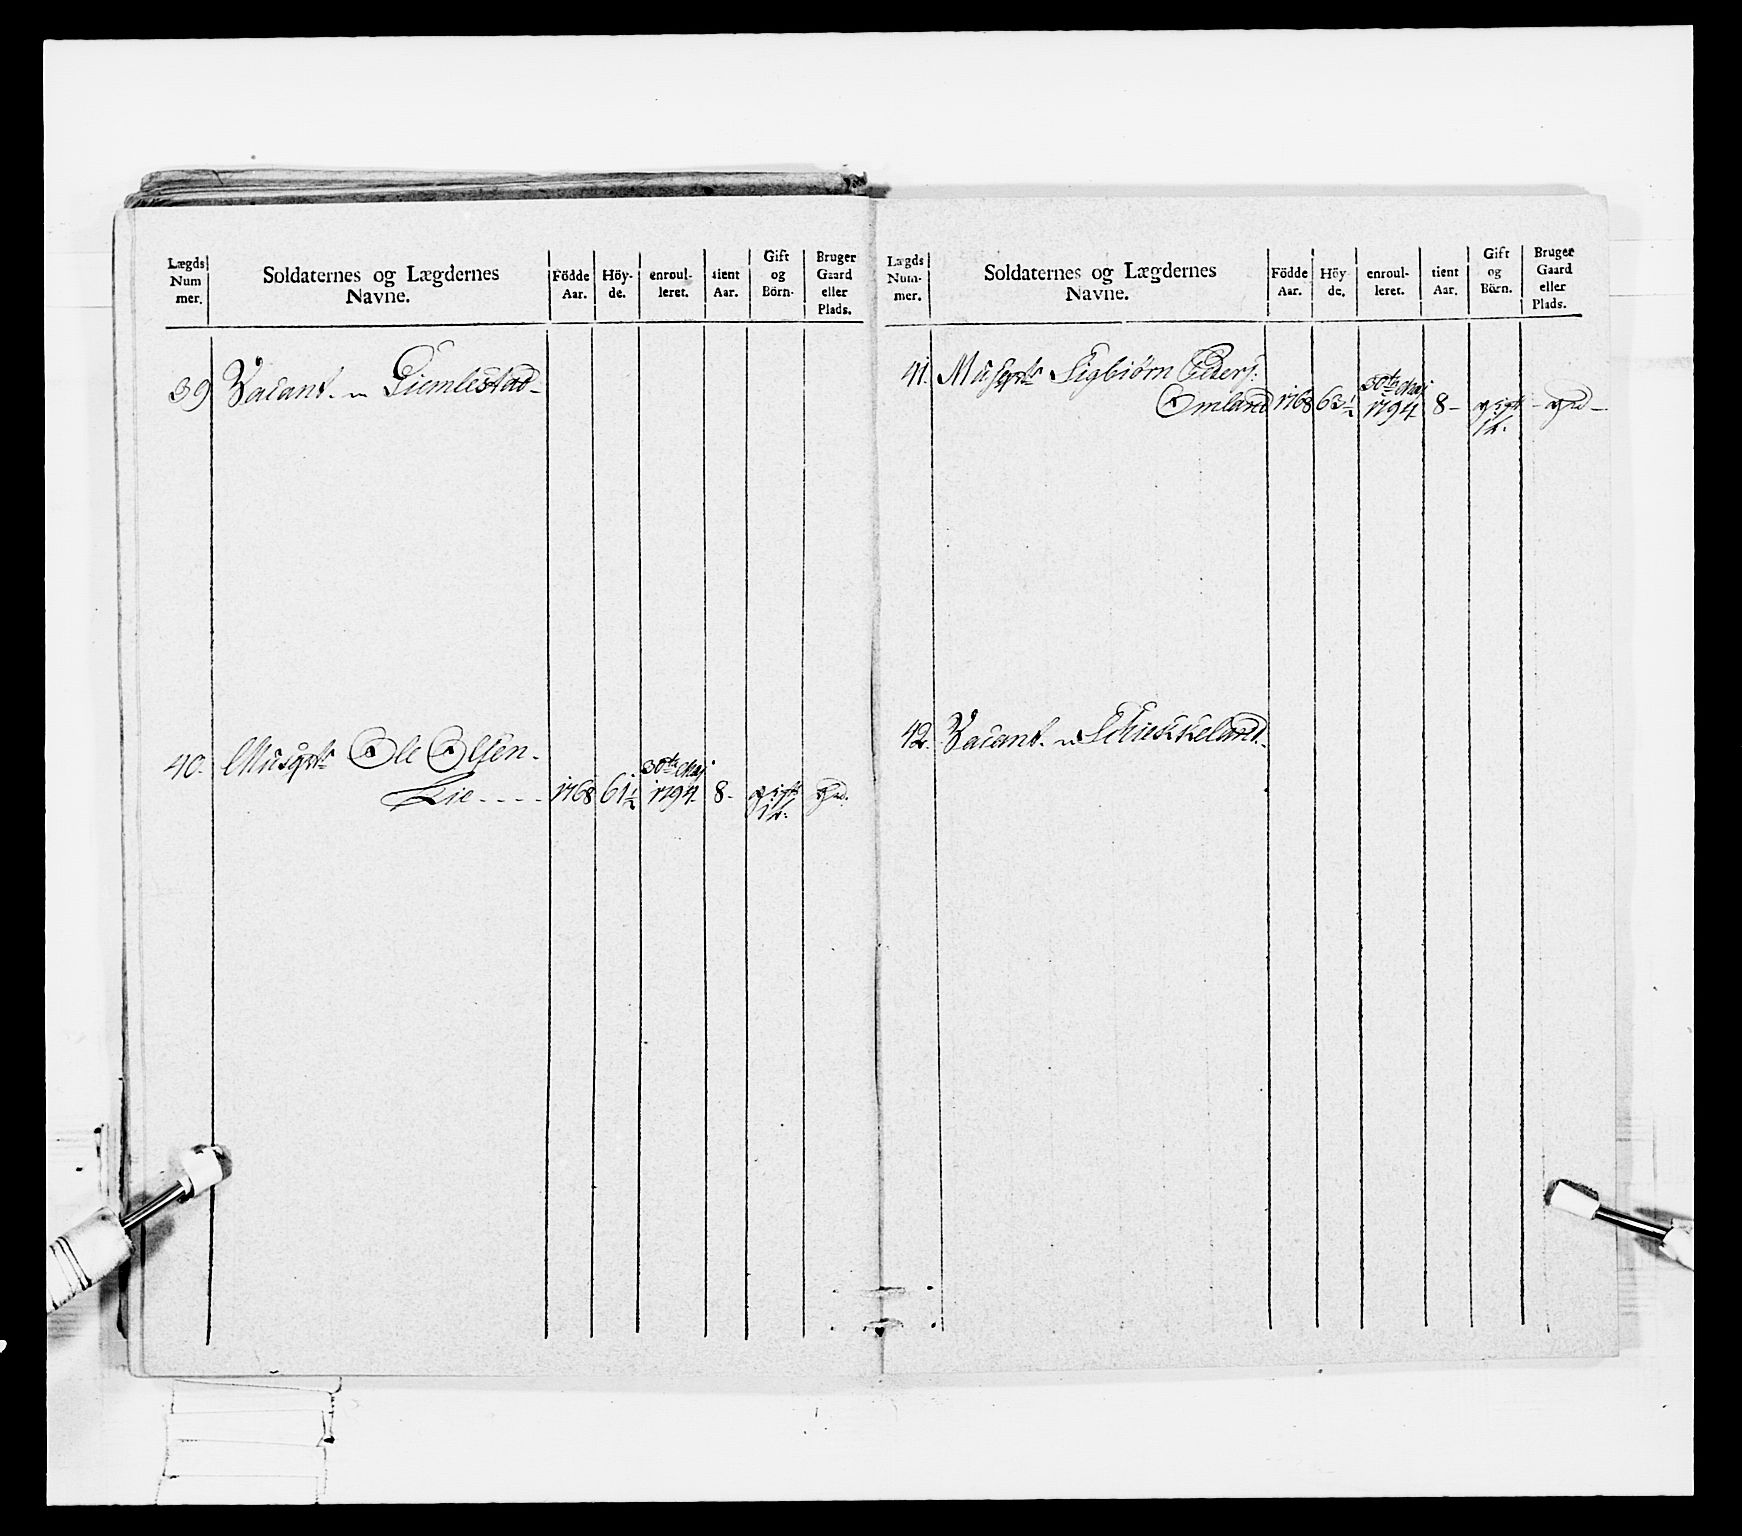 Lægds Num mer.
Soldaternes og Lægdernes Navne.
Födde Aar.
Höy- de.
enroul- leret.
tient Aar.
Gift og Börn.
Bruger Gaard eller Plads.
39 Vacant.
40. Musqvtr Ole Olsen.
Lie - - - - 1768 61½ 30te Maj 1794 8 - gift 1 b:
Lægds Num- mer.
Soldaternes og Lægdernes Navne.
Födde Aar.
Höy- de.
enroul- leret.
tient Aar.
Gift og Börn.
Bruger Gaard eller Plads.
41. Musqvtr Sigbiörn Peders:
Omland 1768 63½ 30te Maj 1794 8 - gift 1 b:
42. Vacant.